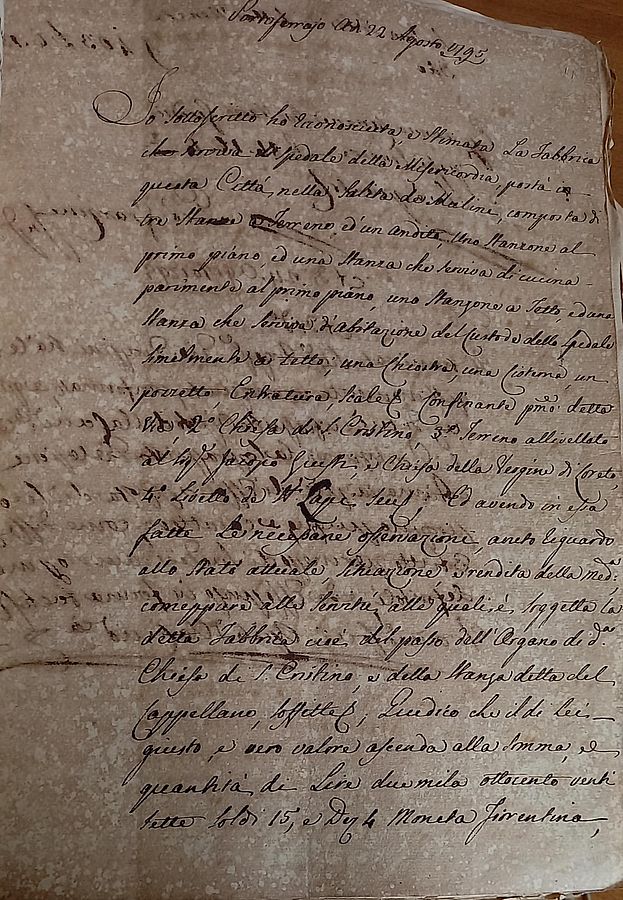 Portoferrajo Adi 22 Agosto 1795
Io sottoscritto ho riconosciuta, e stimata La Fabbrica
che serviva di spedale della Misericordia, posta in
questa Città, nella salita de Mulini, composta di
tre stanze a Terreno, ed un andito, uno stanzone al
primo piano ed una stanza che serviva di cucina
parimente al primo piano, uno stanzone a Tetto, ed una
stanza che serviva d'abitazione del Custode dello spedale
similmente a tetto; una Chiostra, una Cisterna, un
pozzetto Entratura scale &. Confinante pmo: detta
via, 2° Chiesa di S. Cristino, 3° Terreno allivellato
al Sigr. e Chiesa della Vergine di Loreto,
4° Livello de Ed avendo in essa
fatte Le necessarie osservazioni, avuto riguardo
allo stato attuale, situazione e rendita della medª
comeppure alle servitù, alle quali, è, soggetta la
detta Fabbrica cioè del passo dell'Organo di dª
Chiesa di S. Cristino, e della stanza detta del
Cappellano, soffitte &, Giudico che il di lei
giusto, e vero valore ascenda alla somma, e
quantità di Lire duemila ottocento venti
sette soldi 15, e Dej 4 Moneta Fiorentina,